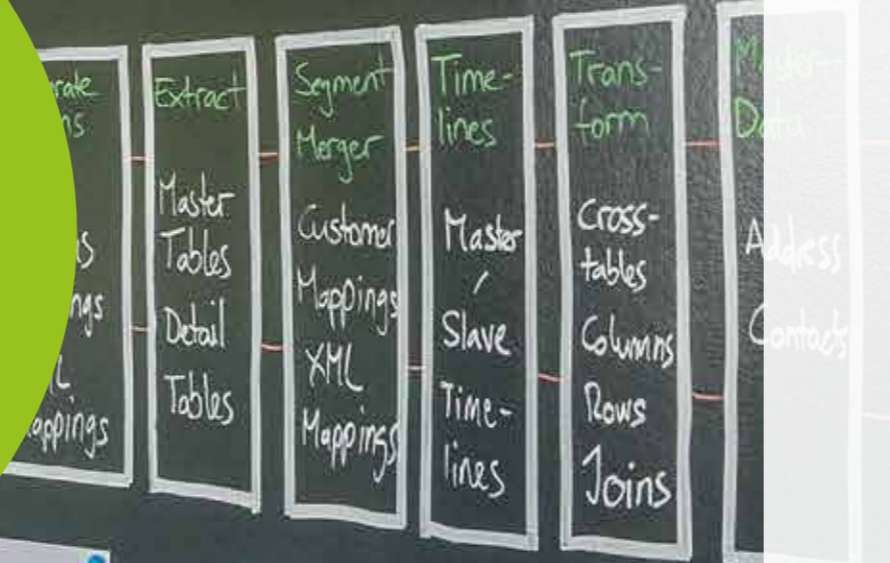 Extract
Master
Tables
Detail
Tables
Segment
Merger
Customer
Mappings
XML
Mappings
Time-
lines
Master
/
Slave
Time-
lines
Trans-
form
Cross-
tables
Columns
Rows
Joins
Master-
Data
Address
Contacts